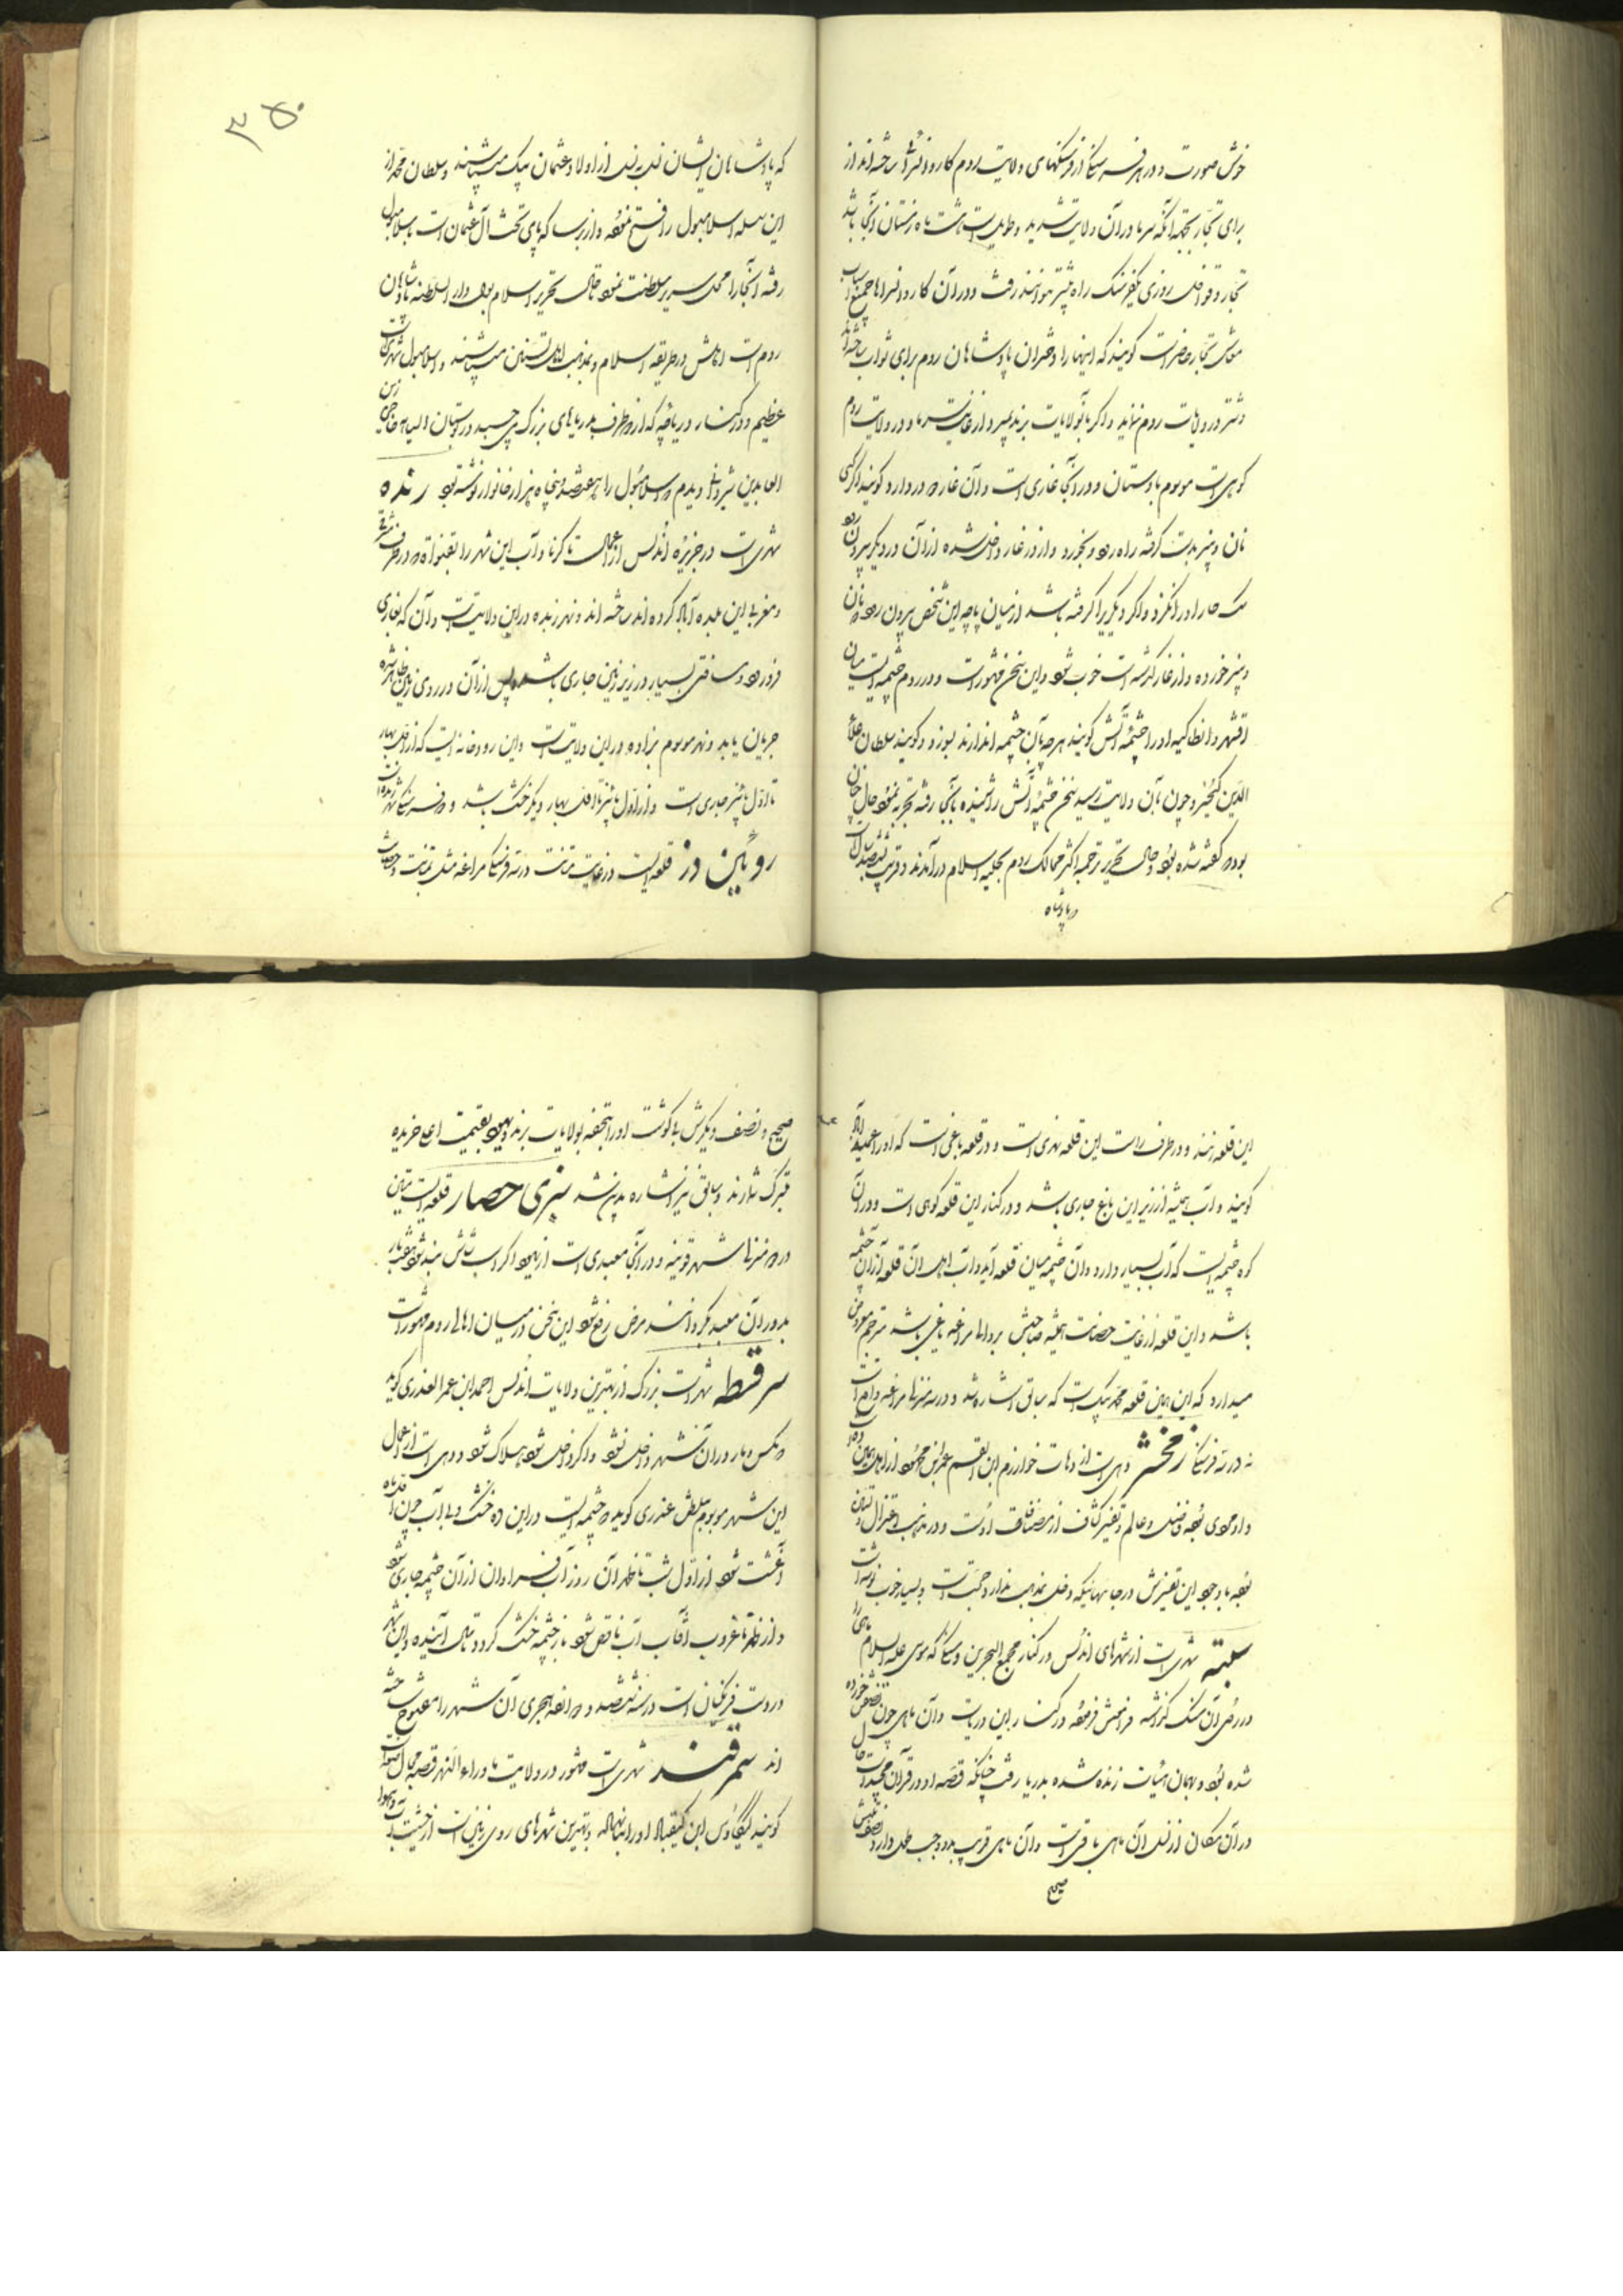 خوش صورت و در هر فرسنگ از فرسنگهای ولایت روم کاروانسرا ساخته‌اند از
برای تجار بجهة آنکه سرما در آن ولایت شدید و طویل است هشت ماه زمستان در آنجا باشد
تجار و قوافل روزی یکفرسنگ راه بیشتر نتوانند رفت و در آن کاروانسراها جمیع اسباب
معاش تجار حاضر است گویند که اینها را دختران پادشاهان روم برای ثواب ساخته‌اند
و شتر در ولایات روم نزاید و اگر بآنولایات برند بمیرد از غایت سرما و در ولایت روم
کوهی است موسوم بادستان و در آنجا غاری است و آن غار دو در دارد گویند اگر کسی
نان و پنیر بدست گرفته راه رود و بخورد و از در غار داخل شده از آن در دیگر بیرون رود
سگ هار او را نگزد و اگر دیگری را گزیده باشد از میان پاچه این شخص بیرون رود که نان
و پنیر خورده و از غار گذشته است خوب شود و این سخن مشهور است و در روم چشمه ایست میان
اقشهر و انطاکیه او را چشمه آتش گویند هر چه بآن چشمه اندازند بسوزد و گویند سلطان علاء
الدین کیخسرو چون بآن ولایت رسید سخن چشمه آتش را شنیده بآنجا رفته تجربه نمود حال چنان
بوده که گفته شده بود و حال تحریر ترجمه اکثر ممالک روم بحلیه اسلام درآمدند و قریب سیصد سال است
که پادشاه
۳۵۰
که پادشاهان ایشان نسل به نسل از اولاد عثمان بیک میباشند و سلطان محمد از
این سلسله اسلامبول را فتح نموده و از برسا که پای تخت آل عثمان است باسلامبول
رفته آنجا را محل سریر سلطنت نمود تا حال تحریر اسلام بول دار السلطنه پادشاهان
روم است اهلش در طریقه اسلام و بمذهب اهل تسنن میباشند و اسلامبول شهری است
عظیم و در کنار دریاچه که از دو طرف بدریاهای بزرگ می‌چسبد در بوستان السیاحه حاجی زین
العابدین شیروانی دیدم که اسلامبول را هفتصد و پنجاه هزار خانوار نوشته بود رنده
شهری است در جزیره اندلس از اعمال تاکرنا و آب این شهر را بقنواة در طرف شرقی
و مغربی این بلده آباد کرده‌اند ساخته‌اند و نهر زنده در این ولایت است و آن که بغاری
فرو رود و مسافتی بسیار در زیر زمین جاری باشد پس از آن در روی زمین ظاهر شده
جریان یابد و نهر موسوم بزاده در این ولایت است و این رودخانه ایست که از اول بهار
تا اول پائیز جاری است و از اول پائیز تا اول بهار دیگر خشک باشد
روئین دز قلعه ایست در غایت متانت در سه فرسنگی مراغه
این قلعه نهند و در طرف راست این قلعه نهری است و در قلعه باغی است که او را عمیدآباد
گویند و آب همیشه از زیر این باغ جاری باشد و در کنار این قلعه کوهی است و در آن
کوه چشمه ایست که آب بسیار دارد و آن چشمه میان قلعه آید و آب اهل آن قلعه از آن چشمه
باشد و این قلعه از غایت حصانت همیشه صاحبش بر والی مراغه یاغی باشد مترجم معروض
میدارد که این همین قلعه محمد بیک است که سابق اشاره شد و در سه منزلی مراغه واقع است
نه در سه فرسنگی زمخشر دهی است از دهات خوارزم ابن القسم عمر ابن محمود از اهل همین ده است
و او مردی بوده فاضل و عالم و تفسیر کشاف از مصنفات اوست و در مذهب اعتزال
بوده با وجود این تفسیرش در جاهائیکه دخلی بمذهب ندارد حجت است و بسیار خوب نوشته است
سبتة شهری است از شهرهای اندلس در کنار مجمع البحرین و سنگی که موسی علیه السلام ماهی را
در روی آن سنگ گذاشته فراموش فرموده در کنار این دریاست و آن ماهی چون نصفش خورده
شده بود و بهمان هیئات زنده شده بدریا رفت چنانکه قصه او در قرآن مجید است حال
در آن مکان از نسل آن ماهی باقی است و آن ماهی قریب بدو وجب طول دارد نصفش
صحیح
صحیح و نصف دیگرش با گوشت او را بتحفه بولایات برند و یهود بقیمت اعلی خریده
تبرک شمارند و سابق نیز اشاره بدین شد سبزی حصار قلعه ایست متین
در دو منزلی شهر قونیه و در آنجا معبدی است از یهود اگر اسب شاش بند شود هفت بار
بدور آن معبد بگردانند مرض رفع شود این سخن در میان اهالی روم مشهور است
سرقسطه شهری است بزرگ از بهترین ولایات اندلس احمد ابن عمر العذری گوید
که مگس و مار در آن شهر داخل نشود و اگر داخل شود هلاک شود و دهی است از اعمال
این شهر موسوم بلطش عذری گوید که چشمه ایست در این ده خشک و بی آب چون اول ماه
آغشت شود از اول شب تا ظهر آن روز آب فراوان از آن چشمه جاری شود
و از ظهر تا غروب آفتاب آب ناقص شود باز چشمه خشک گردد تا سال آینده و این شهر
در دست فرنگیان است در سنه ششصد و دوازده هجری آن شهر را مفتوح ساخته
اند سمرقند شهری است مشهور در ولایت ماوراء النهر
گویند کیکاوس ابن کیقباد او را بنا نهاده و بهترین شهرهای روی زمین است